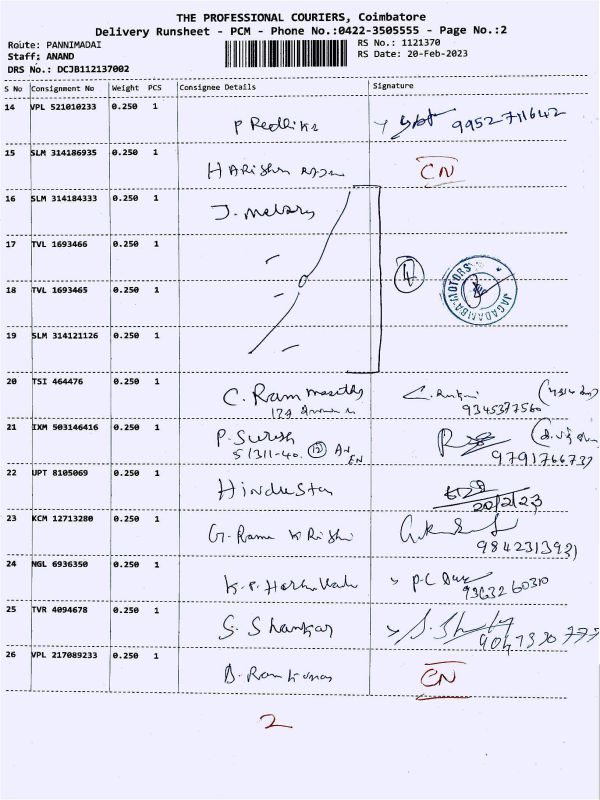 THE PROFESSIONAL COURIERS, Coimbatore
Delivery Runsheet - PCM - Phone No.:0422-3505555 - Page No.:2
Route: PANNIMADAI
RS No.: 1121370
Staff: ANAND
RS Date: 20-Feb-2023
DRS No.: DCJB112137002
S No Consignment No Weight PCS Consignee Details Signature
14 VPL 521010233 0.250 1
P Redlika 9952711642
15 SLM 314186935 0.250 1
CN
16 SLM 314184333 0.250 1
J.
17 TVL 1693466 0.250 1
4
18 TVL 1693465 0.250 1
JAGADAMBA MOTORS
19 SLM 314121126 0.250 1
20 TSI 464476 0.250 1
C. Ram
9345377560
21 IXM 503146416 0.250 1
P. Suresh
51311-40. 12
22 UPT 8105069 0.250 1
Hindustan
20/2/23
23 KCM 12713280 0.250 1
G. Rama Krishi
984231393
24 NGL 6936350 0.250 1
K.P.
9363260310
25 TVR 4094678 0.250 1
S. Shankar
26 VPL 217089233 0.250 1
CN
2